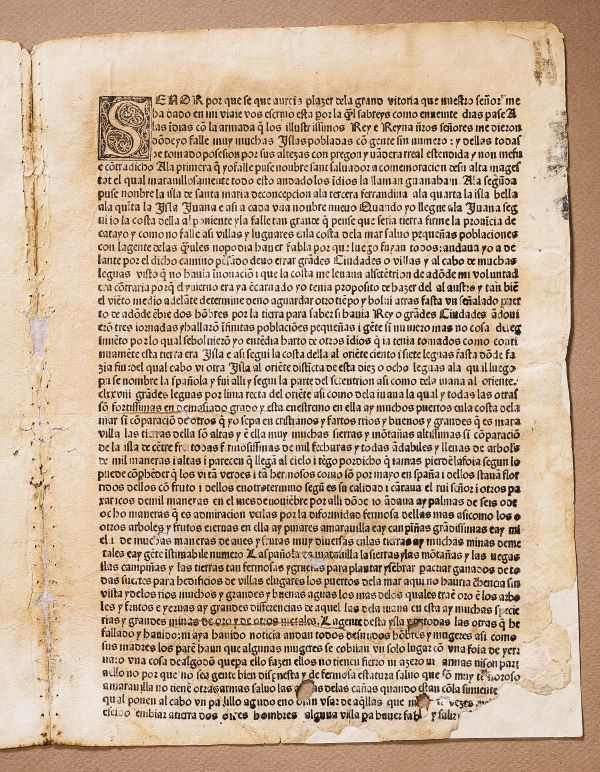 SEÑOR por que se que aureis plazer dela grand vitoria que nuestro señor me
ha dado en mi viaie vos escriuo esta por la ql̃ sabreys como enueinte dias pase A
las īdias cō la armada q̄ los illustrissimos Rey e Reyna ñros señores me dieron
ōdeyo falle muy muchas Jslas pobladas cō gente sin numero : y dellas todas
he tomado posesion por sus altezas con pregon y uādera rreal estendida y non mefu
e cōtradicho Ala primera q̄ yofalle puse noubre sant saluador a comemoracion desu alta mages
tat el qual marauillosamente todo esto andado los īdios la llaman guanaham Ala segūda
puse nonbre la isla de santa maria deconcepcion ala tercera ferrandina ala quarta la isla bella
ala quīta la Jsla Juana e asi a cada vna nonbre nueuo Quando yo llegue ala Juana seg
ui io la costa della al poniente yla falle tan grande q̄ pense que seria tierra firme la prouicia de
catayo y como no falle asi villas y luguares enla costa dela mar saluo pequeñas poblaciones
con lagente delas qūles nopodia hauer fabla por que luego fuyan todos : andaua yo a de
lante por el dicho camino pēsādo deuo errar grādes Ciudades o villas y al cabo de muchas
leguas visto q̄ no hauia īnouaciō i que la costa me leuaua alsetētrion de adōde mi voluntad
era cōtraria porq̄ el yuierno era ya ēcarnado yo tenia proposito de hazer del al austro y tan biē
el viēto medio adelāte determine deno aguardar otro tiēpo y bolui atras fasta vn señalado puer
to de adōde ēbie dos hōbres por la tierra para saber si hauia Rey o grādes Ciudades ādoui
erō tres iornadas yhallarō īfinitas poblaciōes pequeñas i gēte si numero mas no cosa deieg
imiēto por lo qual sebolnierō yo entēdia harto de otros īdios q̄ ia tenia tomados como conti
nuamēte esta tierra era Jsla e asi segui la costa della al oriēte ciento i siete leguas fasta dōde fa
zia fin : del qual cabo vi otra Jsla al oriēte disticta de esta diez o ocho leguas ala qual luego
puse nombre la spañola y fui alli y segui la parte del setentrion asi como dela iuana al oriente.
clxxviii grādes leguas por linia recta del oriēte asi como dela iuana la qual y todas las otras
sō fortissimas en demasiado grado y esta enestremo en ella ay muchos puertos enla costa dela
mar si cōparaciō de otros q̄ yo sepa en cristianos y fartos rrios y buenos y grandes q̄ es mara
villa las tierras della sō altas y ē ella muy muchas sierras y mōtañas altissimas si cōparaciō
de la isla de cētre fre todas fermosissimas de mil fechuras y todas ādabiles y llenas de arbols
de mil maneras i altas i parecen q̄ llegā al cielo i tēgo pordicho q̄ iamas pierdē lafoia segun lo
puede cōphēder q̄ los vi tā verdes i tā hermosos como sō por mayo en spaña i dellos stauā flor
ridos dellos cō fruto i dellos enotrotermino segū es su calidad i cātaua el rui señor i otros pa
xaricos demil maneras en el mes de nouiēbre por alli dōde io ādaua ay palmas de seis ode
ocho maneras que es admiracion verlas por la diformidad fermosa dellas mas asicomo los o
otros arboles y frutos eieruas en ella ay pinares amarauilla eay canpiñas grādissimas eay mi
el i de muchas maneras de aues y frutas muy diuersas enlas tierras ay muchas minas deme
tales eay gēte īstimabile numero Laspañola es marauilla la sierras ylas mōtañas y las uegas
ilas campiñas y las tierras tan fermosas ygruesas para plantar ysēbrar pa criar ganados de to
das suertes para hedificios de villas elugares los puertos dela mar aqui no hauria chencia sin
vista ydelos rios muchos y grandes y buenas aguas los mas delos quales traē oro ē los arbo
les y frutos e yeruas ay grandes differencias de aquel las dela iuana en esta ay muchas specie
rias y grandes minas de oro y de otros metales. Lagente desta ysla ytodas las otras q̄ he
fallado y hauido : ni aya hauido noticia andan todos desnudos hōbres y mugeres asi como
sus madres los parē haun que algunas mugeres se cobiian vn solo lugar cō vna foia de yer
ua : o vna cosa de algodō quepa ello fazen ellos no tienen fierro ni azero ni armas nison para
aello no por que no sea gente bien dispuesta y de fermosa estatura saluo que sō muy temoroso
amarauilla no tienē otras armas saluo las delas cañas quando estan cōla simiente
qual ponen al cabo vn palillo agudo eno osan vsar de aq̄llas que vezes
escido embiar atierra dos otres hombres alguna villa pa hauer fabl y salir